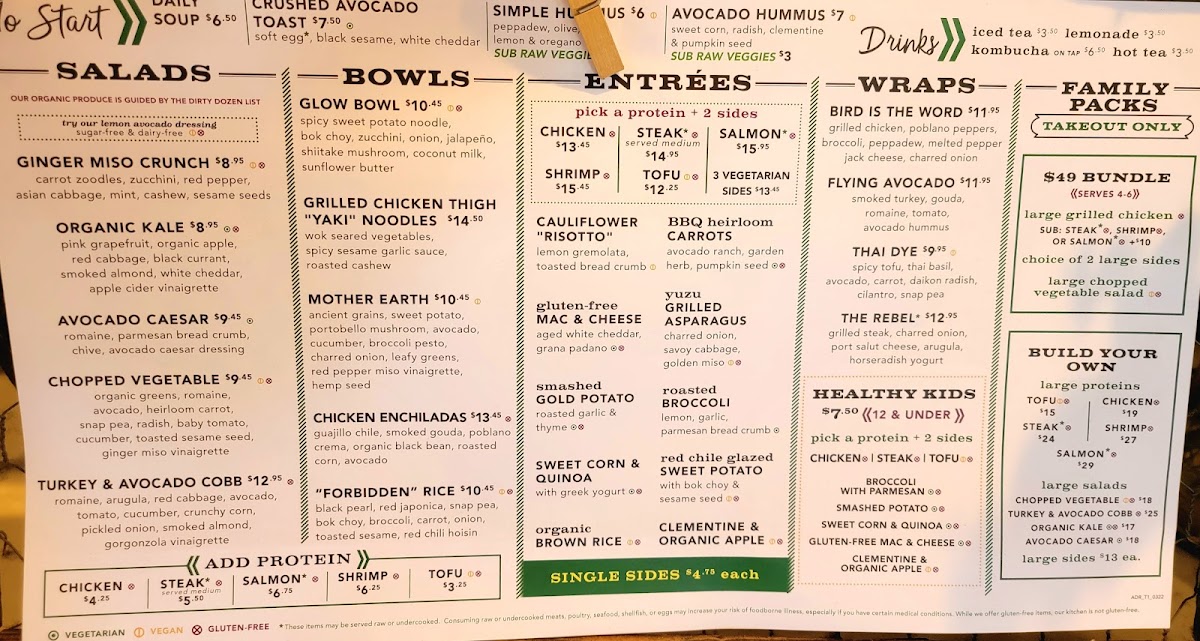 to Start
DAILY
SOUP $6.50
CRUSHED AVOCADO
TOAST $7.50
soft egg*, black sesame, white cheddar
SIMPLE $6
peppadew, olive,
lemon & oregano
SUB RAW
AVOCADO HUMMUS $7
sweet corn, radish, clementine
& pumpkin seed
SUB RAW VEGGIES $3
Drinks
iced tea $3.50 lemonade $3.50
kombucha ON TAP $6.50 hot tea $3.50
SALADS
OUR ORGANIC PRODUCE IS GUIDED BY THE DIRTY DOZEN LIST
try our lemon avocado dressing
sugar-free & dairy-free
GINGER MISO CRUNCH $8.95
carrot zoodles, zucchini, red pepper,
asian cabbage, mint, cashew, sesame seeds
ORGANIC KALE $8.95
pink grapefruit, organic apple,
red cabbage, black currant,
smoked almond, white cheddar,
apple cider vinaigrette
AVOCADO CAESAR $9.45
romaine, parmesan bread crumb,
chive, avocado caesar dressing
CHOPPED VEGETABLE $9.45
organic greens, romaine,
avocado, heirloom carrot,
snap pea, radish, baby tomato,
cucumber, toasted sesame seed,
ginger miso vinaigrette
TURKEY & AVOCADO COBB $12.95
romaine, arugula, red cabbage, avocado,
tomato, cucumber, crunchy corn,
pickled onion, smoked almond,
gorgonzola vinaigrette
BOWLS
GLOW BOWL $10.45
spicy sweet potato noodle,
bok choy, zucchini, onion, jalapeño,
shiitake mushroom, coconut milk,
sunflower butter
GRILLED CHICKEN THIGH
"YAKI" NOODLES $14.50
wok seared vegetables,
spicy sesame garlic sauce,
roasted cashew
MOTHER EARTH $10.45
ancient grains, sweet potato,
portobello mushroom, avocado,
cucumber, broccoli pesto,
charred onion, leafy greens,
red pepper miso vinaigrette,
hemp seed
CHICKEN ENCHILADAS $13.45
guajillo chile, smoked gouda, poblano
crema, organic black bean, roasted
corn, avocado
"FORBIDDEN" RICE $10.45
black pearl, red japonica, snap pea,
bok choy, broccoli, carrot, onion,
toasted sesame, red chili hoisin
ADD PROTEIN
CHICKEN
$4.25
STEAK*
served medium
$5.50
SALMON*
$6.75
SHRIMP
$6.25
TOFU
$3.25
ENTRÉES
pick a protein + 2 sides
CHICKEN
$13.45
STEAK*
served medium
$14.95
SALMON*
$15.95
SHRIMP
$15.45
TOFU
$12.25
3 VEGETARIAN
SIDES $13.45
CAULIFLOWER
"RISOTTO"
lemon gremolata,
toasted bread crumb
BBQ heirloom
CARROTS
avocado ranch, garden
herb, pumpkin seed
gluten-free
MAC & CHEESE
aged white cheddar,
grana padano
yuzu
GRILLED
ASPARAGUS
charred onion,
savoy cabbage,
golden miso
smashed
GOLD POTATO
roasted garlic &
thyme
roasted
BROCCOLI
lemon, garlic,
parmesan bread crumb
SWEET CORN &
QUINOA
with greek yogurt
red chile glazed
SWEET POTATO
with bok choy &
sesame seed
organic
BROWN RICE
CLEMENTINE &
ORGANIC APPLE
SINGLE SIDES $4.75 each
WRAPS
BIRD IS THE WORD $11.95
grilled chicken, poblano peppers,
broccoli, peppadew, melted pepper
jack cheese, charred onion
FLYING AVOCADO $11.95
smoked turkey, gouda,
romaine, tomato,
avocado hummus
THAI DYE $9.95
spicy tofu, thai basil,
avocado, carrot, daikon radish,
cilantro, snap pea
THE REBEL* $12.95
grilled steak, charred onion,
port salut cheese, arugula,
horseradish yogurt
HEALTHY KIDS
$7.50 《12 & UNDER》
pick a protein + 2 sides
CHICKEN | STEAK | TOFU
BROCCOLI
WITH PARMESAN
SMASHED POTATO
SWEET CORN & QUINOA
GLUTEN-FREE MAC & CHEESE
CLEMENTINE &
ORGANIC APPLE
FAMILY
PACKS
TAKEOUT ONLY
$49 BUNDLE
《SERVES 4-6》
large grilled chicken
SUB: STEAK*, SHRIMP,
OR SALMON* +$10
choice of 2 large sides
large chopped
vegetable salad
BUILD YOUR
OWN
large proteins
TOFU
$15
CHICKEN
$19
STEAK*
$24
SHRIMP
$27
SALMON*
$29
large salads
CHOPPED VEGETABLE $18
TURKEY & AVOCADO COBB $25
ORGANIC KALE $17
AVOCADO CAESAR $18
large sides $13 ea.
ADR_T1_0322
VEGETARIAN VEGAN GLUTEN-FREE *These items may be served raw or undercooked. Consuming raw or undercooked meats, poultry, seafood, shellfish, or eggs may increase your risk of foodborne illness, especially if you have certain medical conditions. While we offer gluten-free items, our kitchen is not gluten-free.